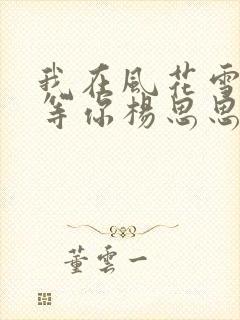 我在風花雪
等你楊思思
董雲一